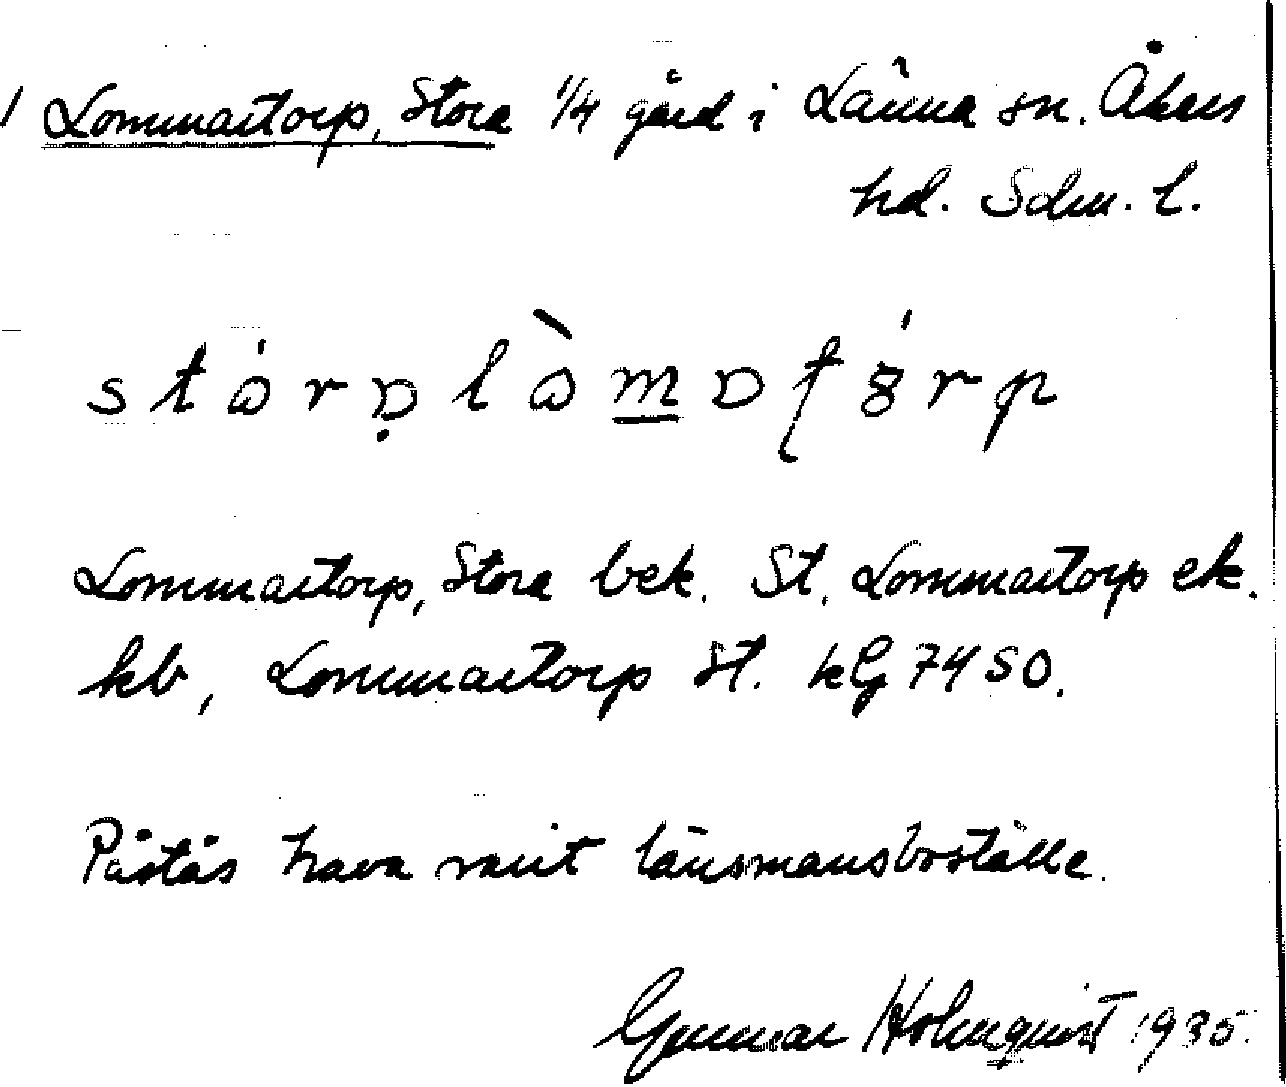 / Lommartorp, Stora 1/4 gård i Länna sn. Åkers
hd. Sdm. l.
Lommartorp, Stora bek. St. Lommartorp ek.
kb, Lommartorp St. kG 7450.
Påstås hava varit länsmansboställe.
Gunnar Holmquist 1935.